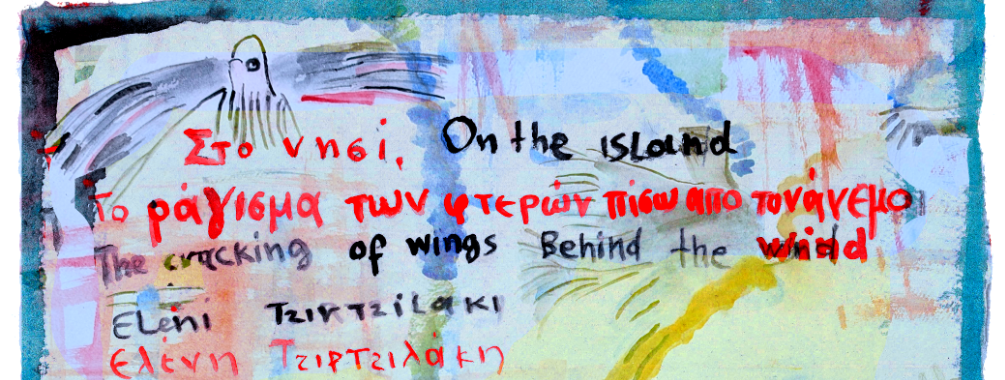 Στο νησί, On the island
Το ράγισμα των φτερών πίσω απο τονάνεμο
The cracking of wings Behind the wind
Eleni Τζιρτζιλακι
Ελένη Τζιρτζιλάκη